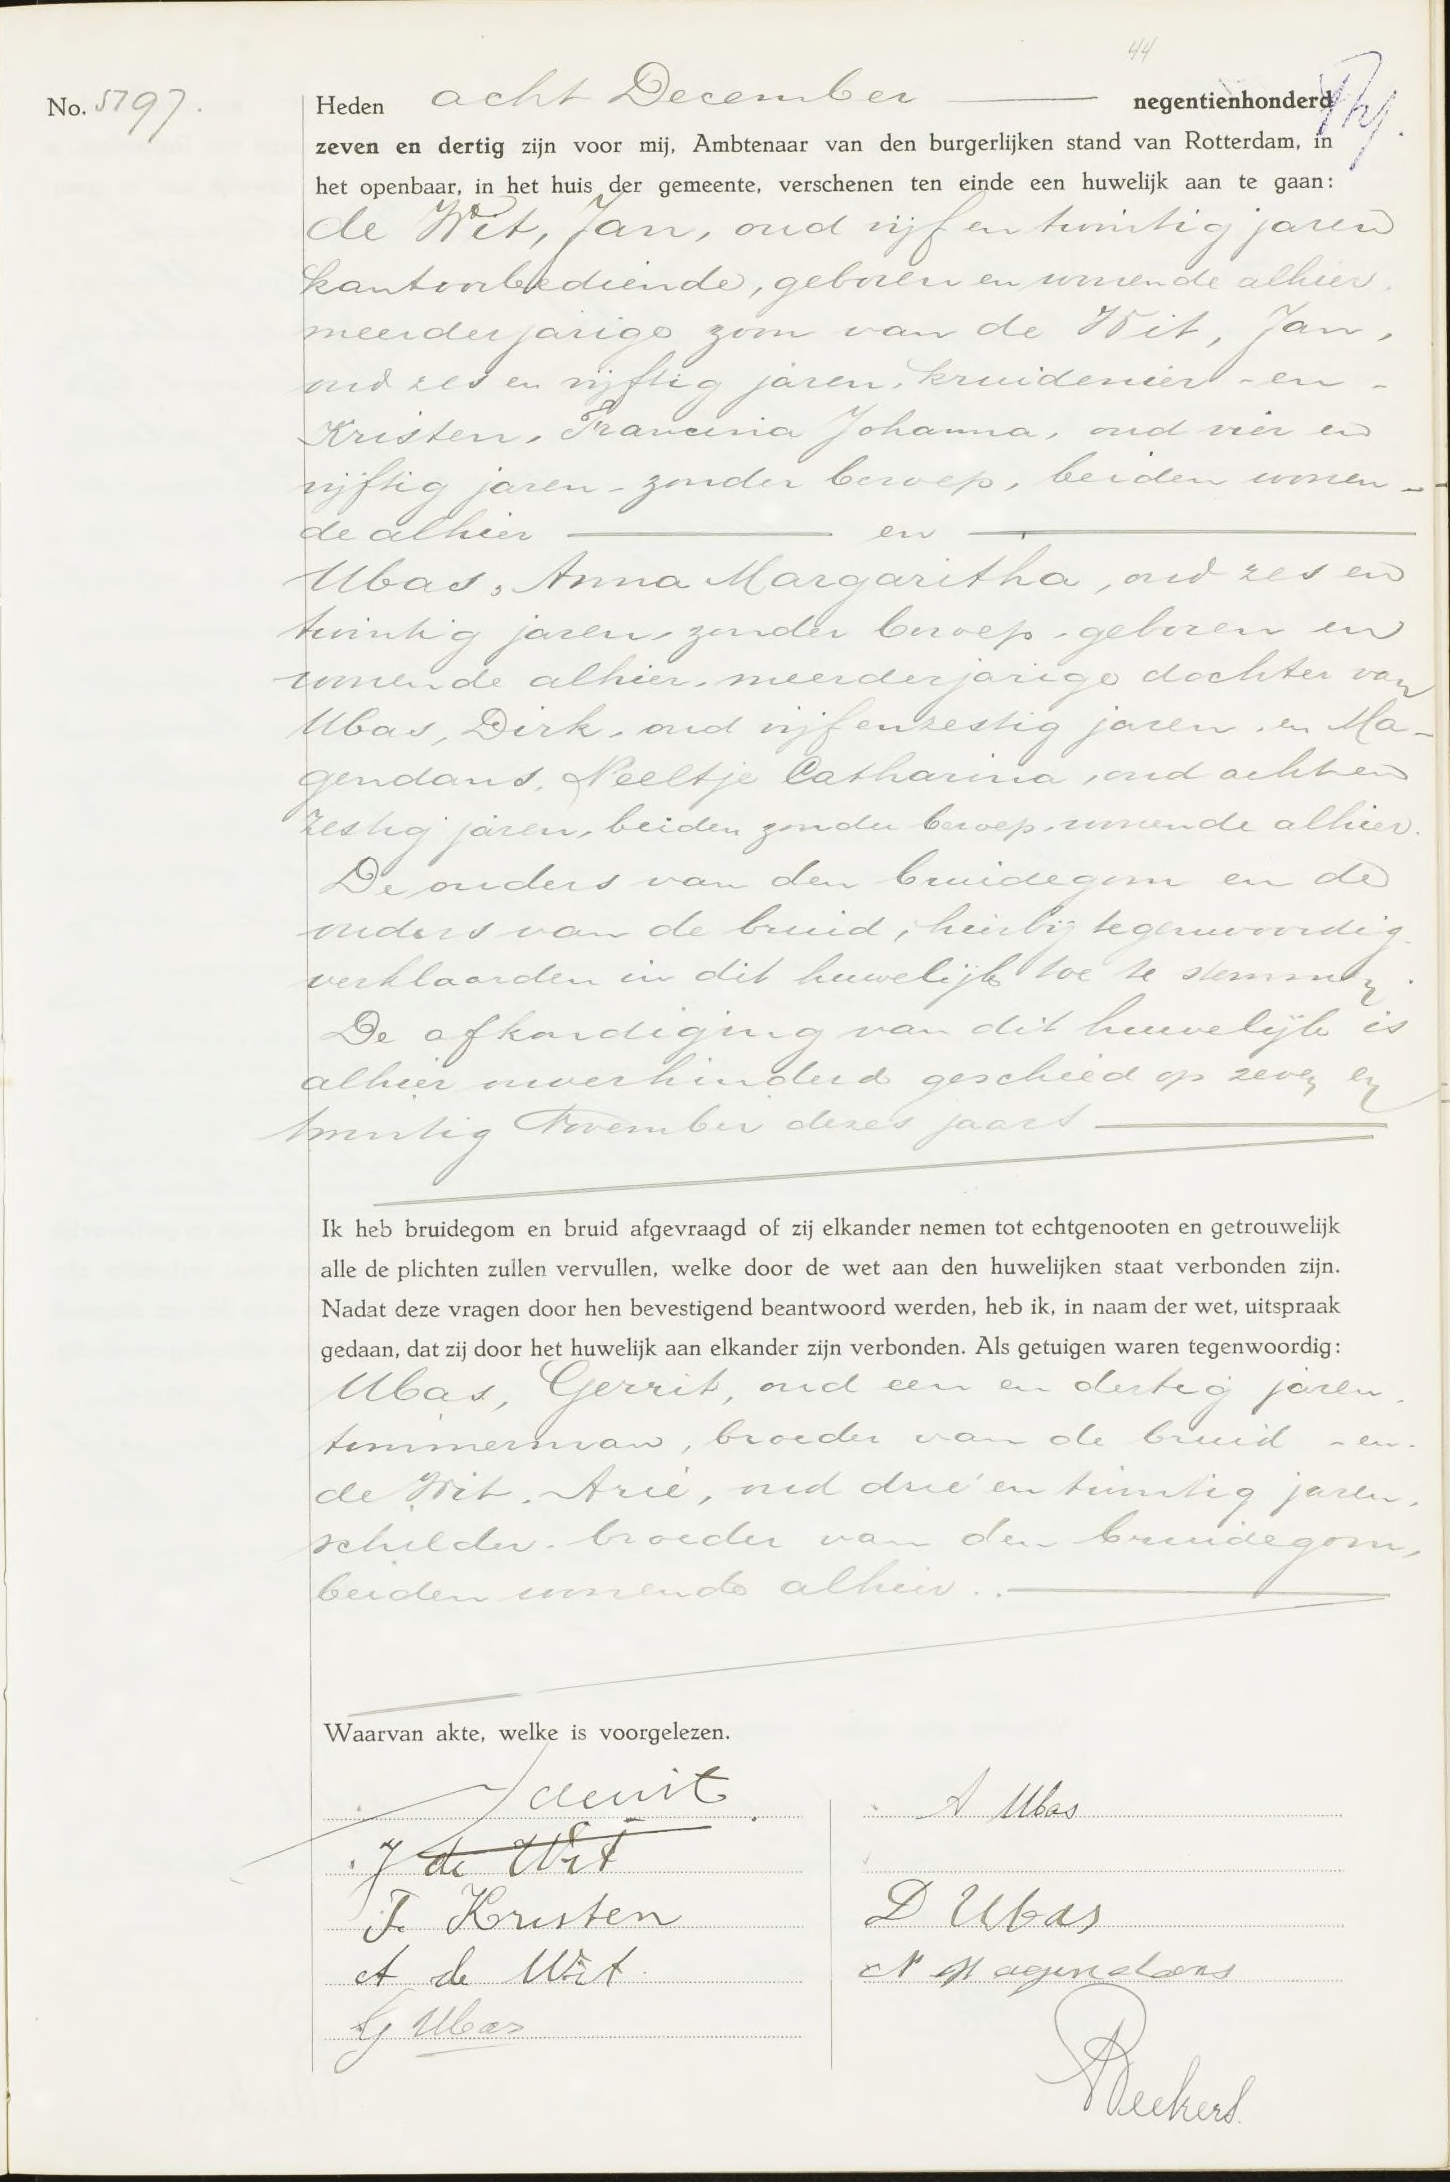 44
No. 5797.
Heden acht December negentienhonderd
zeven en dertig zijn voor mij, Ambtenaar van den burgerlijken stand van Rotterdam, in
het openbaar, in het huis der gemeente, verschenen ten einde een huwelijk aan te gaan:
de Wit, Jan, oud vijf en twintig jaren
kantoorbediende, geboren en wonende alhier.
meerderjarige zoon van de Wit, Jan,
oud zes en vijftig jaren, kruidenier - en -
Kristen, Francina Johanna, oud vier en
vijftig jaren - zonder beroep, beiden wonen -
de alhier en
Ubas, Anna Margaritha, oud zes en
twintig jaren, zonder beroep, geboren en
wonende alhier, meerderjarige dochter van
Ubas, Dirk, oud vijfenzestig jaren, en Ma-
gendans, Neeltje Catharina, oud achten
zestig jaren, beiden zonder beroep, wonende alhier.
De ouders van den bruidegom en de
ouders van de bruid, hierbij tegenwoordig
verklaarden in dit huwelijk toe te stemmen.
De afkondiging van dit huwelijk is
alhier onverhinderd geschied op zeven en
twintig November dezes jaars
Ik heb bruidegom en bruid afgevraagd of zij elkander nemen tot echtgenooten en getrouwelijk
alle de plichten zullen vervullen, welke door de wet aan den huwelijken staat verbonden zijn.
Nadat deze vragen door hen bevestigend beantwoord werden, heb ik, in naam der wet, uitspraak
gedaan, dat zij door het huwelijk aan elkander zijn verbonden. Als getuigen waren tegenwoordig:
Ubas, Gerrit, oud een en dertig jaren,
timmerman, broeder van de bruid - en -
de Wit, Arie, oud drie en twintig jaren,
schilder, broeder van den bruidegom,
beiden wonende alhier.
Waarvan akte, welke is voorgelezen.
J de Wit
A Ubas
J de Wit
F. Kristen
D Ubas
A de Wit
N Magendans
G Ubas